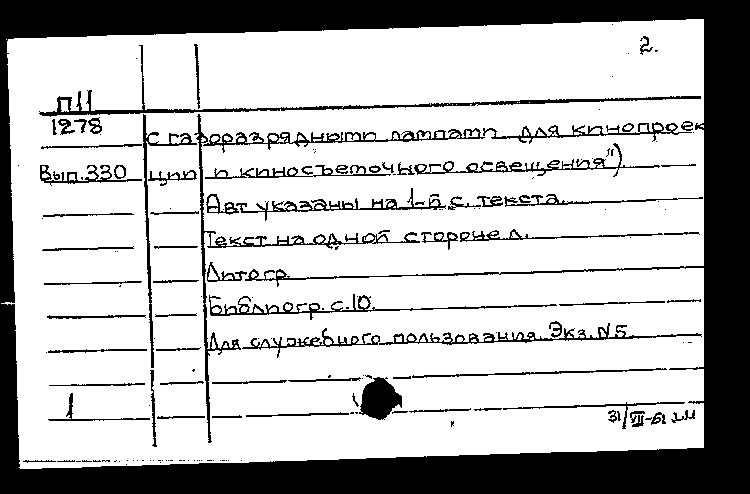 2.
П11
1278
с газоразрядными лампами для кинопроек
Вып.330 ции и киносъемочного освещения")
Авт указаны на 1-й с. текста.
Текст на одной стороне л.
Литогр.
Библиогр. с.10.
Для служебного пользования. Экз. N5
1
31/VIII-61